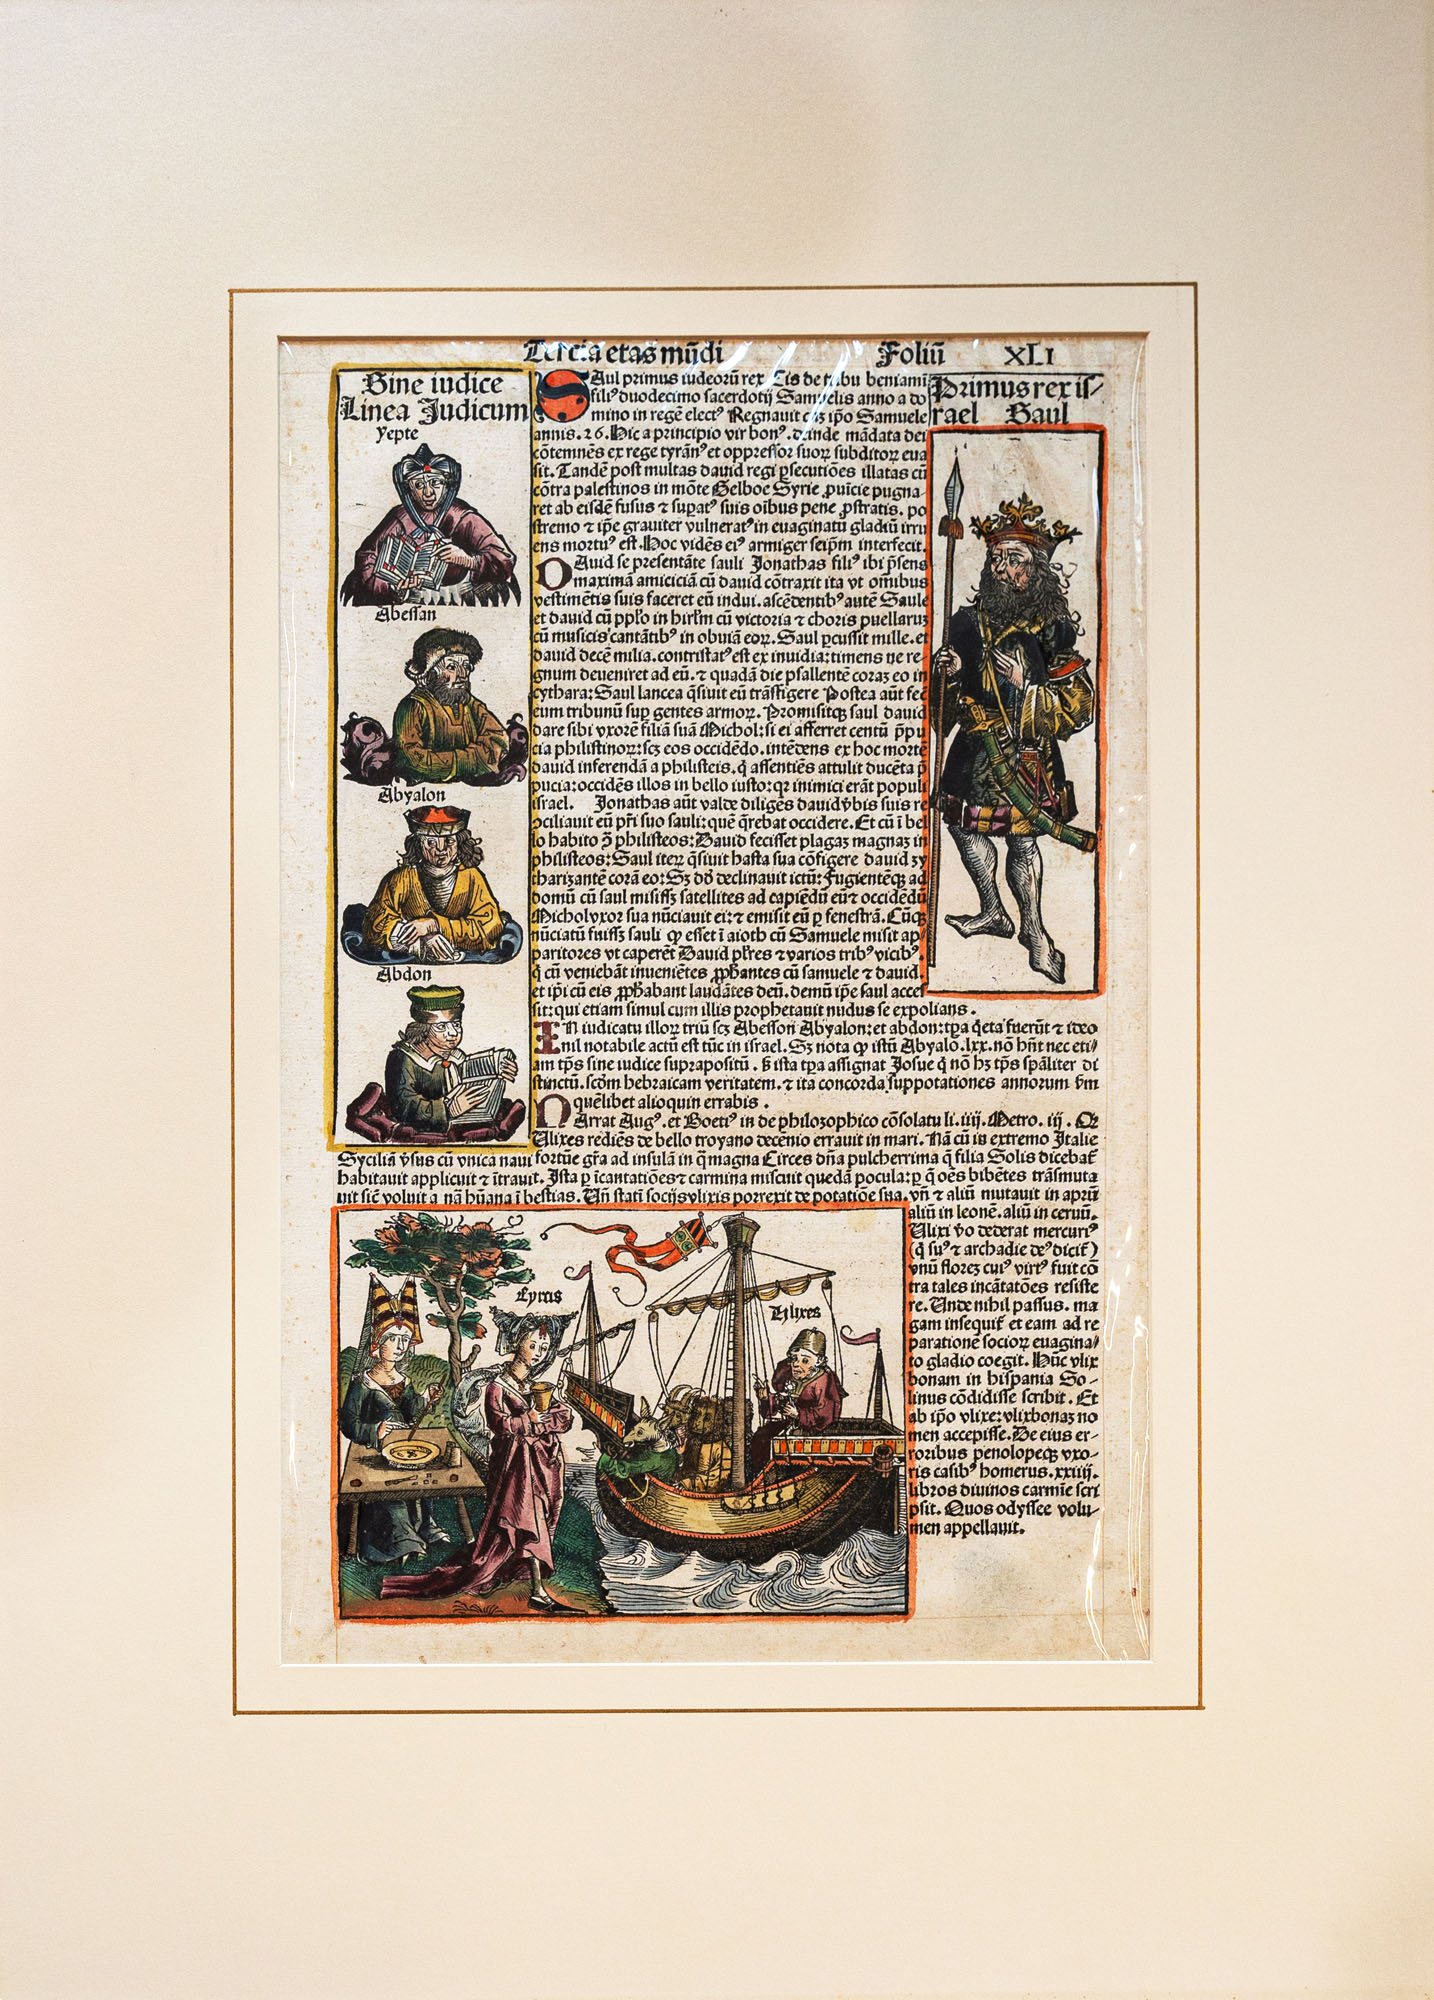 Tercia etas mūdi
Foliū XLI
Sine iudice
Linea Judicum
Yepte
Abessan
Abyalon
Abdon
SAul primus iudeorū rex Cis de tribu beniami
filiꝰ duodecimo sacerdotij Samuelis anno a do
mino in regē electꝰ Regnauit cū ip̄o Samuele
annis. 26. Hic a principio vir bonꝰ. deinde mādata dei
cōtemnēs ex rege tyrānꝰ et oppressor suoꝝ subditoꝝ eua
sit. Tandē post multas dauid regi ꝑsecutiōes illatas cū
cōtra palestinos in mōte Gelboe Syrie ꝓuīcie pugna-
ret ab eisdē fusus ⁊ suꝑatꝰ suis oībus pene ꝓstratis. po
stremo ⁊ ip̄e grauiter vulneratꝰ in euaginatū gladiū irru
ens mortuꝰ est. Hoc vidēs eiꝰ armiger seip̄m interfecit.
DAuid se presentāte sauli Jonathas filiꝰ ibi p̄sens
maximā amiciciā cū dauid cōtraxit ita vt omībus
vestimētis suis faceret eū indui. ascēdentibꝰ autē Saule
et dauid cū pp̄lo in hirl̄m cū victoria ⁊ choris puellaruꝫ
cū musicis cantātibꝰ in obuiā eoꝝ. Saul ꝑcussit mille. et
dauid decē milia. contristatꝰ est ex inuidia: timens ne re-
gnum deueniret ad eū. ⁊ quadā die psallentē coraꝫ eo in
cythara: Saul lancea q̄siuit eū trāsfigere Postea aūt fec̄
eum tribunū suꝑ gentes armoꝝ. Promisitqꝫ saul dauid
dare sibi vxorē filiā suā Michol: si ei afferret centū p̄pu
cia philistinoꝝ: scꝫ eos occidēdo. intēdens ex hoc mortē
dauid inferendā a philisteis. q̄ assentiēs attulit ducēta p̄
pucia: occidēs illos in bello iusto: qꝛ inimici erāt populi
israel. Jonathas aūt valde diligēs dauid v̄bis suis re
ɔciliauit eū pr̄i suo sauli: quē q̄rebat occidere. Et cū ī bel
lo habito ɔ̄ philisteos: Dauid fecisset plagaꝫ magnaꝫ in
philisteos: Saul iteꝝ q̄siuit hasta sua cōfigere dauid zy
tharizantē corā eo: Sꝫ dd̄ declinauit ictū: Fugientēqꝫ ad
domū cū saul misissꝫ satellites ad capiēdū eū ⁊ occidēdū
Michol vxor sua nūciauit ei: ⁊ emisit eū ꝑ fenestrā. Cūqꝫ
nūciatū fuissꝫ sauli ꝙ esset ī aioth cū Samuele misit ap-
paritores vt caperēt Dauid pl̄res ⁊ varios tribꝰ vicibꝰ.
q̄ cū veniebāt inueniētes ꝓphantes cū samuele ⁊ dauid.
et ip̄i cū eis ꝓphabant laudātes deū. demū ip̄e saul acces
sit: qui etiam simul cum illis prophetauit nudus se expolians.
IN iudicatu illoꝝ triū scꝫ Abesson Abyalon: et abdon: tp̄a q̄eta fuerūt ⁊ ideo
nil notabile actū est tūc in israel. Sꝫ nota ꝙ istū Abyalō. lxx. nō hn̄t nec eti-
am tp̄s sine iudice suprapositū.
quēlibet alioquin errabis.
NArrat Augꝰ. et Boetiꝰ in de philozophico cōsolatu li. iiij. Metro. iij.
Ulixes rediēs de bello troyano decēnio errauit in mari. Nā cū in extremo Italie
Syciliā v̄sus cū vnica naui fortūe gr̄a ad insulā in q̄ magna Circes dn̄a pulcherrima q̄ filia Solis dicebat̄
habitauit applicuit ⁊ ītrauit. Ista ꝑ īcantatiōes ⁊ carmina miscuit quedā pocula: ꝑ q̄ oēs bibētes trāsmuta
uit sic̄ voluit a nā hūana ī bestias. Un̄ statī socijs vlixis porrexit de potatiōe sua. vn̄ ⁊ aliū mutauit in aprū
aliū in leonē. aliū in ceruū.
Ulixi v̄o dederat mercuriꝰ
(q̄ suꝰ ⁊ archadie deꝰ dicit̄)
vnū floreꝫ cuiꝰ virtꝰ fuit cō
tra tales incātatōes resiste
re. Unde nihil passus. ma
gam insequit̄ et eam ad re
parationē socioꝝ euagina-
to gladio coegit. Hūc vlix
bonam in hispania So-
linus cōdidisse scribit. Et
ab ip̄o vlixe: vlixbonaꝫ no
men accepisse. De eius er-
roribus penolopeqꝫ vxo-
ris casibꝰ homerus. xxiiij.
libros diuinos carmīe scri
psit. Quos odyssee volu-
men appellauit.
Primus rex is-
rael Saul
Cyrces
Ulixes